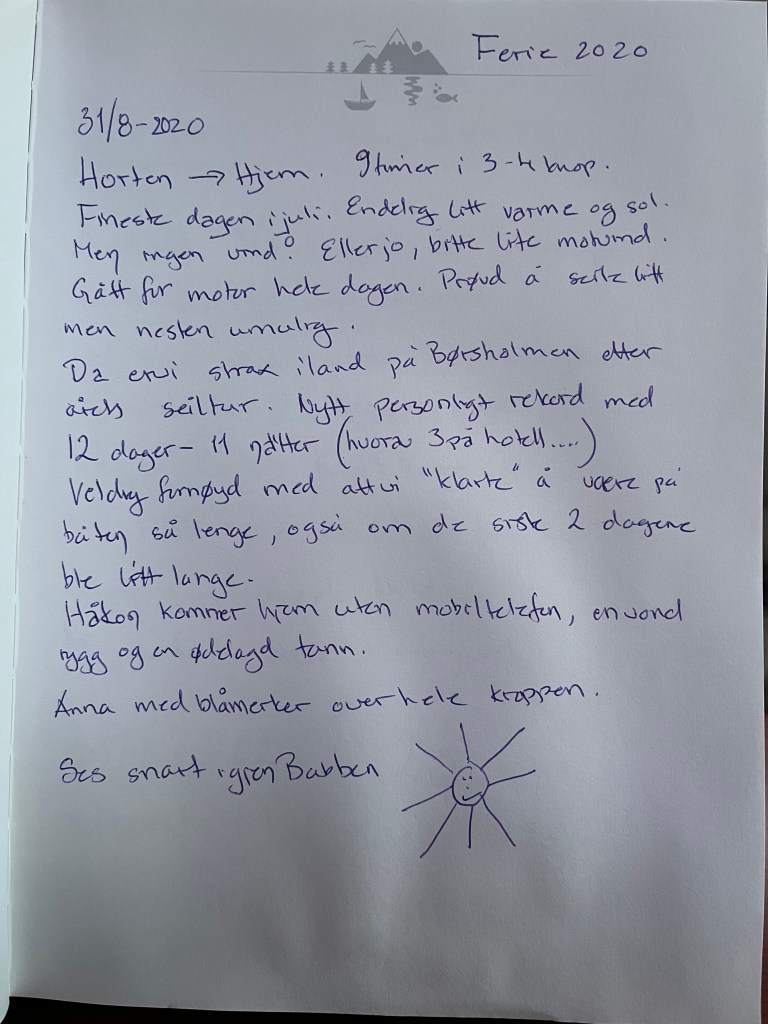 Ferie 2020
31/8-2020
Horten → Hjem. 9 timer i 3-4 knop.
Fineste dagen i juli. Endelig litt varme og sol.
Men ingen vind! Eller jo, bitte lite motvind.
Gått for motor hele dagen. Prøvd å seile litt
men nesten umulig.
Da er vi strax iland på Børsholmen etter
årets seiltur. Nytt personligt rekord med
12 dager - 11 nätter (hvorav 3 på hotell....)
Veldig fornøyd med att vi "klarte" å være på
båten så lenge, også om de siste 2 dagene
ble litt lange.
Håkon kommer hjem uten mobiltelefon, en vond
rygg og en ødelagd tann.
Anna med blåmerker over hele kroppen.
Ses snart igjen Babben